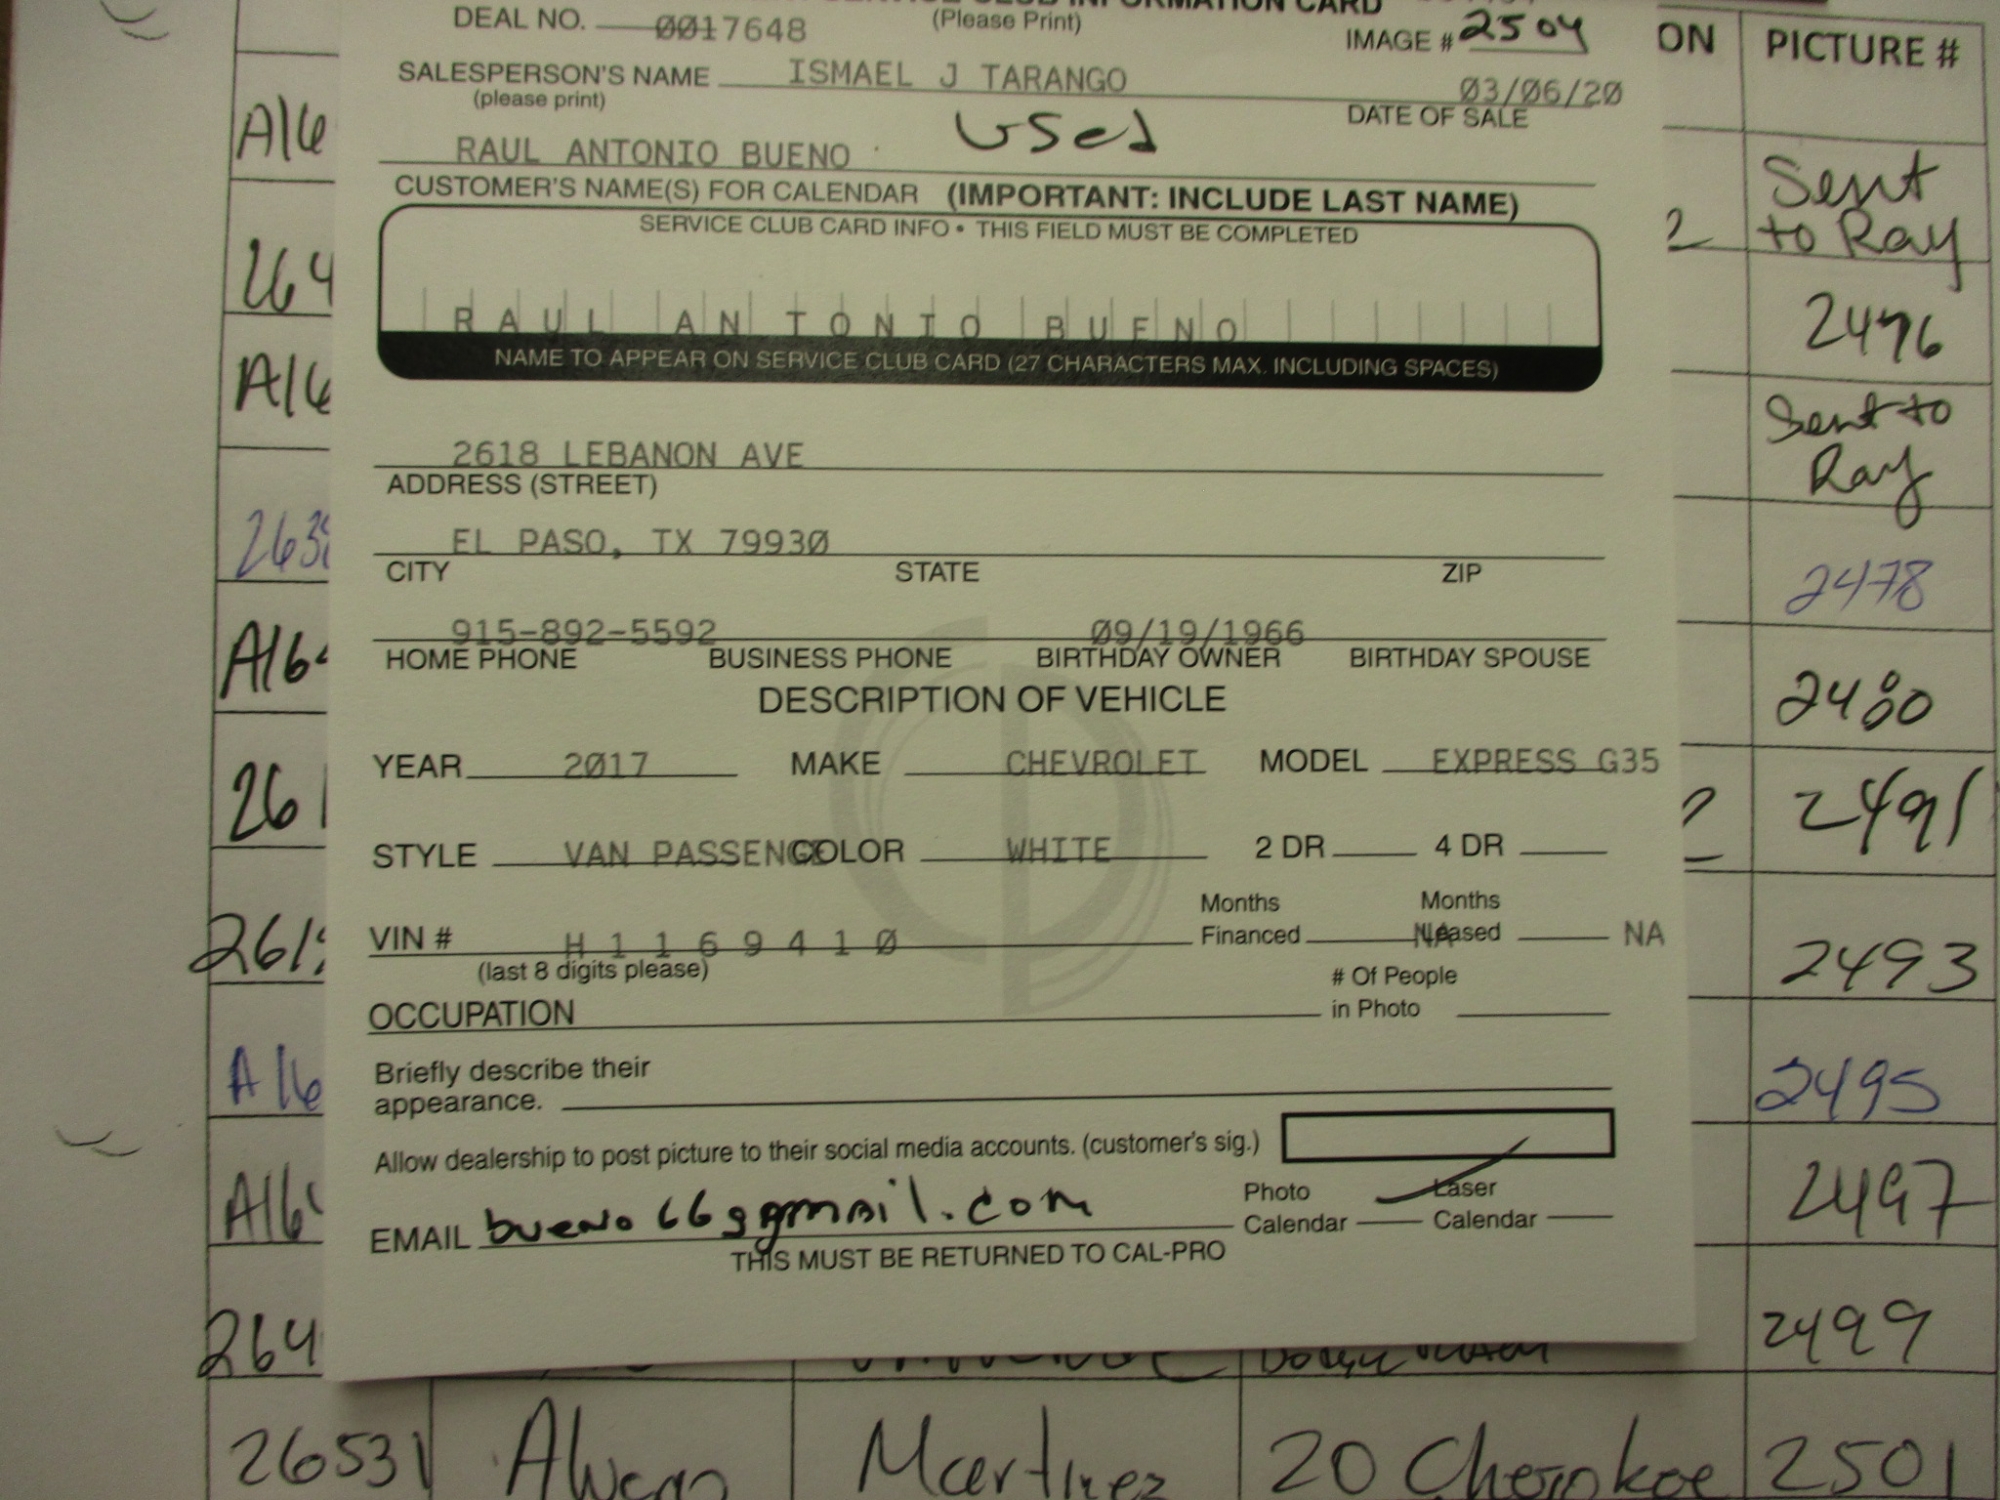 INFORMATION CARD
DEAL NO. 0017648 (Please Print) IMAGE # 2504
SALESPERSON'S NAME ISMAEL J TARANGO 03/06/20
(please print) DATE OF SALE
RAUL ANTONIO BUENO Used
CUSTOMER'S NAME(S) FOR CALENDAR (IMPORTANT: INCLUDE LAST NAME)
SERVICE CLUB CARD INFO • THIS FIELD MUST BE COMPLETED
RAUL ANTONIO BUENO
NAME TO APPEAR ON SERVICE CLUB CARD (27 CHARACTERS MAX. INCLUDING SPACES)
2618 LEBANON AVE
ADDRESS (STREET)
EL PASO, TX 79930
CITY STATE ZIP
915-892-5592 09/19/1966
HOME PHONE BUSINESS PHONE BIRTHDAY OWNER BIRTHDAY SPOUSE
DESCRIPTION OF VEHICLE
YEAR 2017 MAKE CHEVROLET MODEL EXPRESS G35
STYLE VAN PASSENGE COLOR WHITE 2 DR 4 DR
VIN # H1169410 Months Financed NA Months Leased NA
(last 8 digits please)
OCCUPATION # Of People in Photo
Briefly describe their
appearance.
Allow dealership to post picture to their social media accounts. (customer's sig.)
EMAIL bueno66@gmail.com Photo Calendar Laser Calendar
THIS MUST BE RETURNED TO CAL-PRO
ON PICTURE #
A16 Sent to Ray
264 2476
A16 Sent to Ray
2638 2478
A16 2480
261 2491
261 2493
A16 2495
A16 2497
264 2499
26531 Martinez 20 Cherokee 2501